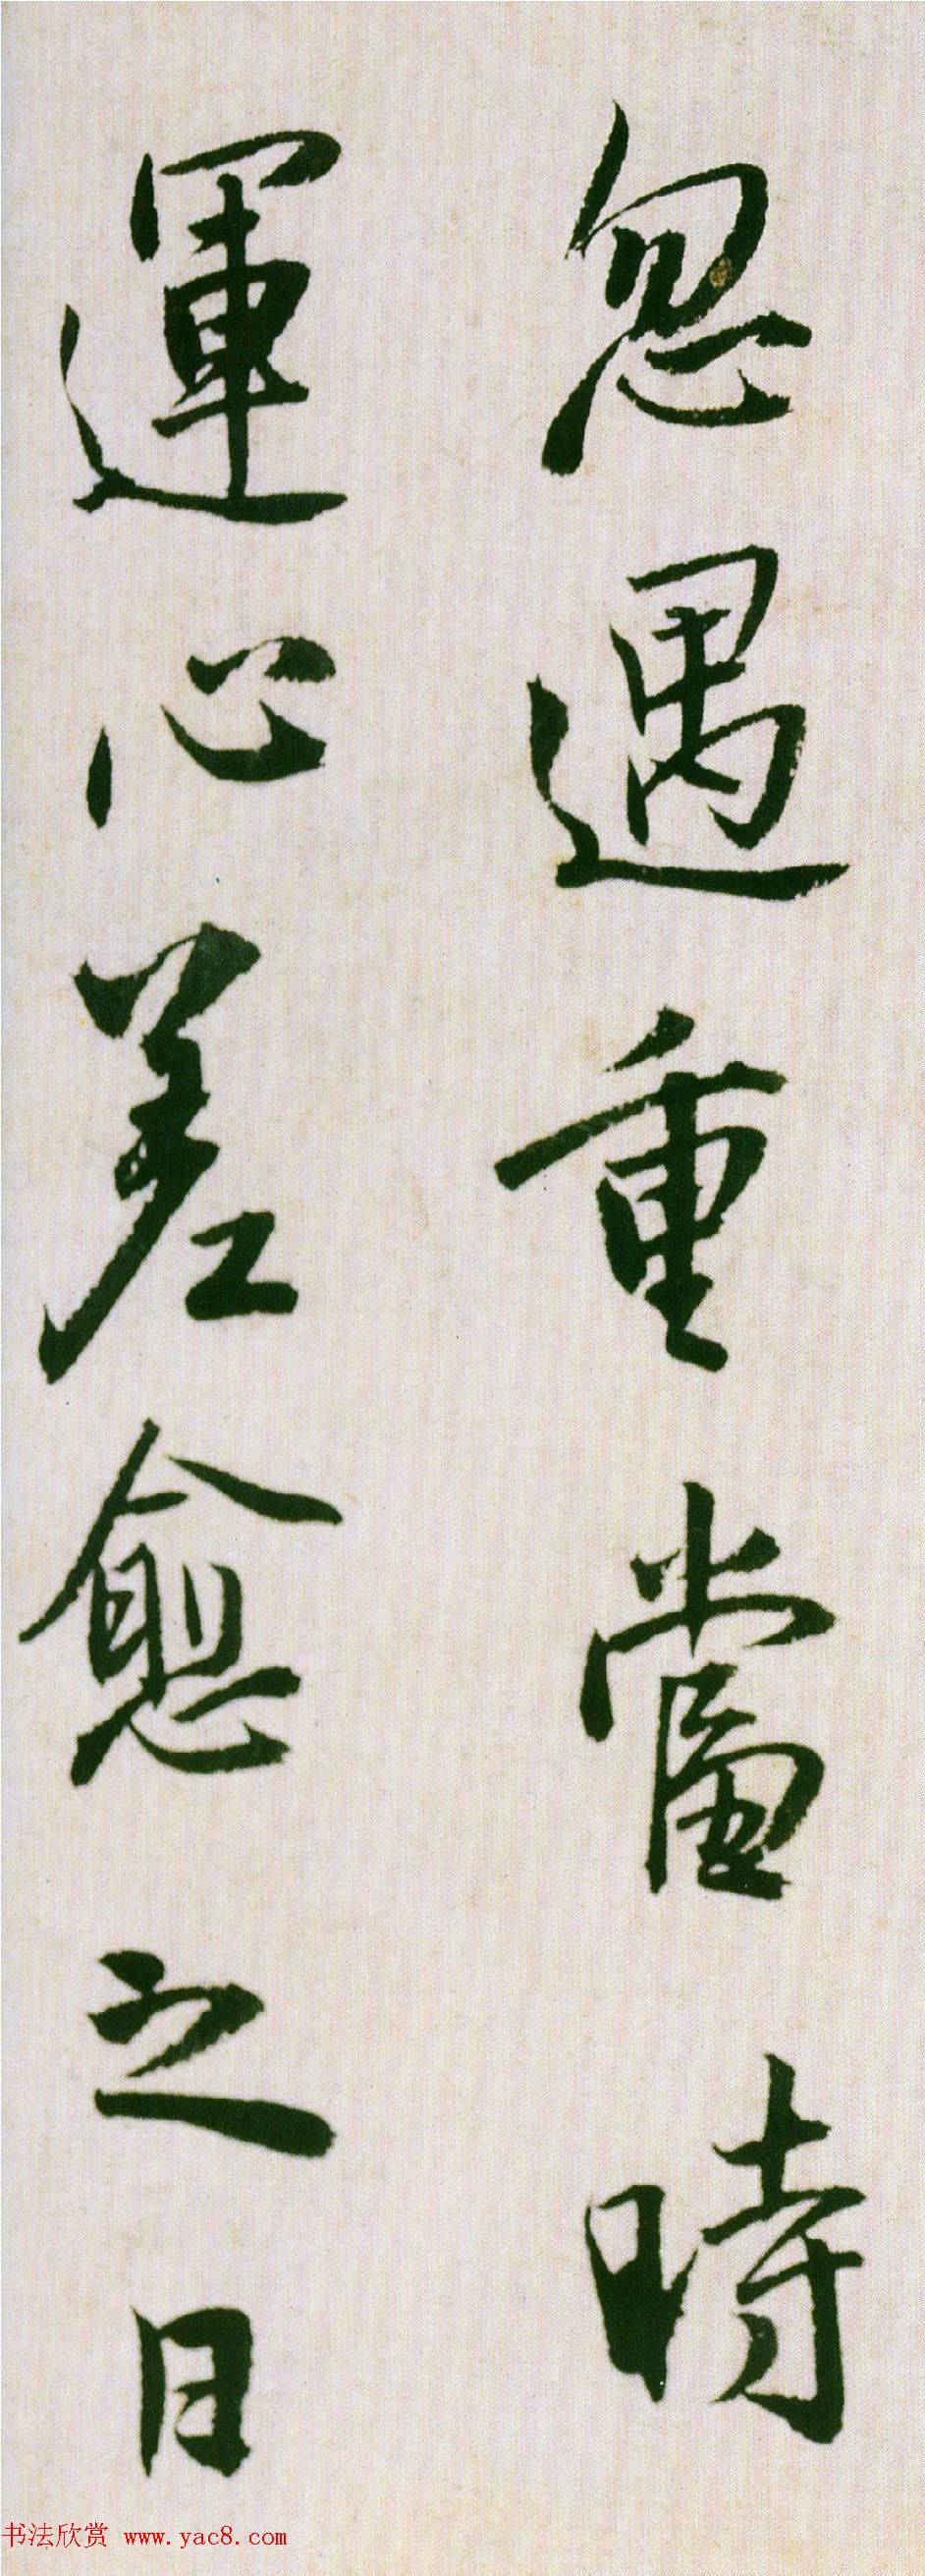 忽遇重當時
運心差愈之日
书法欣赏 www.yac8.com